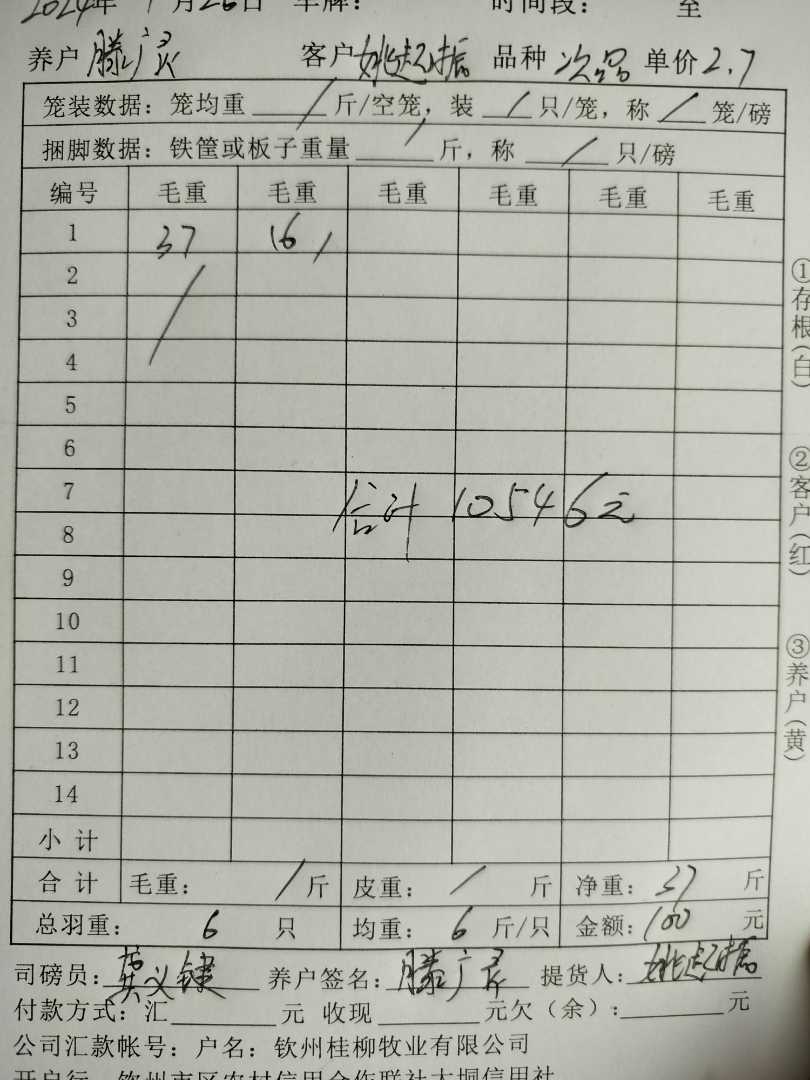 2024年 1月26日 车牌: 时间段: 至
养户 滕广灵 客户 姚起振 品种 次品 单价 2.7
笼装数据: 笼均重 / 斤/空笼, 装 / 只/笼, 称 / 笼/磅
捆脚数据: 铁筐或板子重量 / 斤, 称 / 只/磅
编号 毛重 毛重 毛重 毛重 毛重 毛重
1 37 16 /
2 /
3
4
5
6
7
合计 10546元
8
9
10
11
12
13
14
小计
合计 毛重: / 斤 皮重: / 斤 净重: 37 斤
总羽重: 6 只 均重: 6 斤/只 金额: 100 元
司磅员: 莫义键 养户签名: 滕广灵 提货人: 姚起振
付款方式: 汇 元 收现 元欠(余): 元
公司汇款帐号: 户名: 钦州桂柳牧业有限公司
开户行 钦州市区农村信用合作联社大垌信用社
①存根(白)
②客户(红)
③养户(黄)